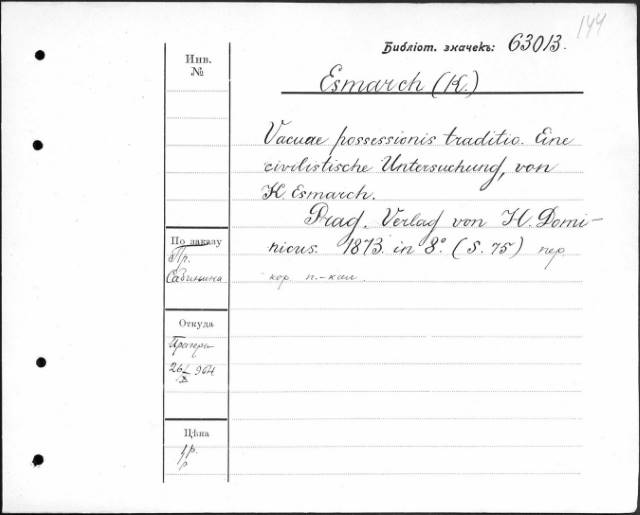 144
Библіот. значекъ: 63013.
Инв.
№
Esmarch (K.)
Vacuae possessionis traditio. Eine
civilistische Untersuchung, von
K. Esmarch.
Prag. Verlag von H. Domi-
nicus. 1873. in 8° (S. 75) пер.
кор. п.-кал.
По заказу
Пр.
Сабинина
Откуда
904
Цѣна